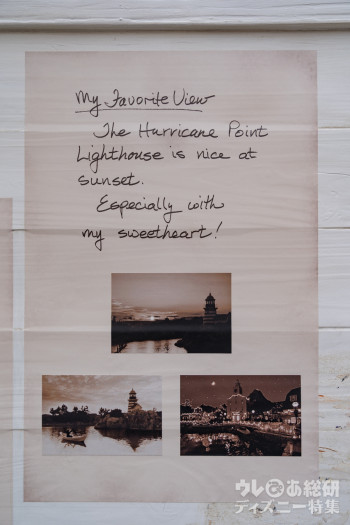 My Favorite View
The Hurricane Point
Lighthouse is nice at
sunset.
Especially with
my sweetheart!
ウレぴあ総研
ディズニー特集